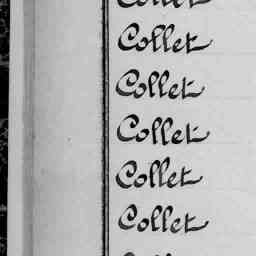 Collet
Collet
Collet
Collet
Collet
Collet